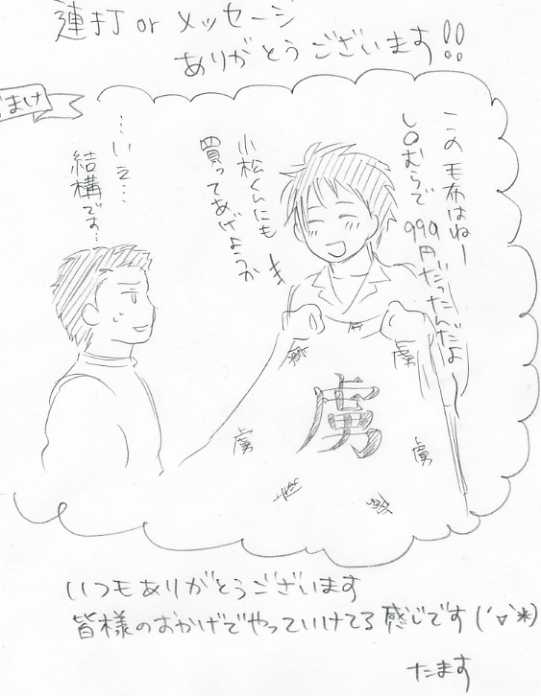 連打 or メッセージ
ありがとうございます!!
おまけ
この毛布はねー
し〇むらで
999円だったんだよ〜
小松くんにも
買ってあげようか
…いえ…
結構です…
虜
虜
虜
虜
いつもありがとうございます
皆様のおかげでやっていけてる感じです(´▽`*)
たます